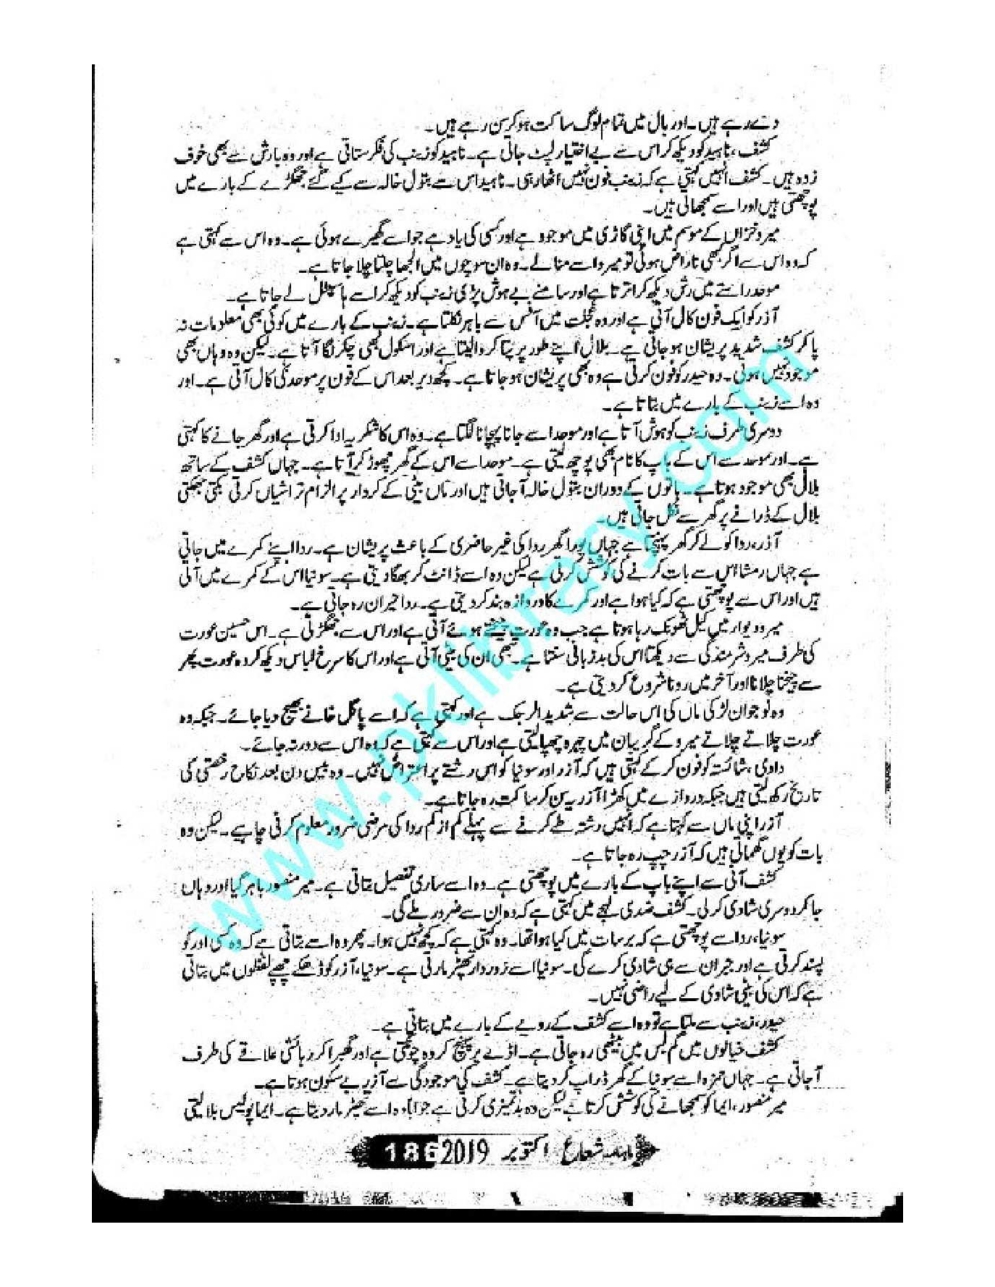 دے رہے ہیں۔ اور ہال میں تمام لوگ ساکت ہو کر سن رہے ہیں۔
کشف، ناہید کو دیکھ کر اس سے بے اختیار لپٹ جاتی ہے۔ ناہید کو زینب کی فکر ستاتی ہے اور وہ بارش سے بھی خوف
زدہ ہیں۔ کشف انہیں کہتی ہے کہ زینب فون نہیں اٹھا رہی۔ ناہید اس سے بتول خالہ سے کیے گئے جھگڑے کے بارے میں
پوچھتی ہیں اور اسے سمجھاتی ہیں۔
میرو خزاں کے موسم میں اپنی گاڑی میں موجود ہے اور کسی کی یاد ہے جو اسے گھیرے ہوئی ہے۔ وہ اس سے کہتی ہے
کہ وہ اس سے اگر کبھی ناراض ہوئی تو میرو اسے منا لے۔ وہ ان سوچوں میں الجھا چلتا چلا جاتا ہے۔
موحد راستے میں رش دیکھ کر اترتا ہے اور سامنے بے ہوش پڑی زینب کو دیکھ کر اسے ہاسپٹل لے جاتا ہے۔
آذر کو ایک فون کال آتی ہے اور وہ عجلت میں آفس سے باہر نکلتا ہے۔ زینب کے بارے میں کوئی بھی معلومات نہ
پا کر کشف شدید پریشان ہو جاتی ہے۔ بلال اپنے طور پر پتا کروا لیتا ہے اور اسکول بھی چکر لگا آتا ہے۔ لیکن وہ وہاں بھی
موجود نہیں ہوتی۔ وہ حیدر کو فون کرتی ہے وہ بھی پریشان ہو جاتا ہے۔ کچھ دیر بعد اس کے فون پر موحد کی کال آتی ہے۔ اور
وہ اسے زینب کے بارے میں بتاتا ہے۔
دوسری طرف زینب کو ہوش آتا ہے اور موحد اسے جانا پہچانا لگتا ہے۔ وہ اس کا شکریہ ادا کرتی ہے اور گھر جانے کا کہتی
ہے۔ اور موحد سے اس کے باپ کا نام بھی پوچھ لیتی ہے۔ موحد اسے اس کے گھر چھوڑ کر آتا ہے۔ جہاں کشف کے ساتھ
بلال بھی موجود ہوتا ہے۔ باتوں کے دوران بتول خالہ آجاتی ہیں اور ماں بیٹی کے کردار پر الزام تراشیاں کرتی بکتی جھکتی
بلال کے ڈرانے پر گھر سے نکل جاتی ہیں۔
آذر، ردا کو لے کر گھر پہنچتا ہے جہاں پورا گھر ردا کی غیر حاضری کے باعث پریشان ہے۔ ردا اپنے کمرے میں جاتی
ہے جہاں رمشا اس سے بات کرنے کی کوشش کرتی ہے لیکن وہ اسے ڈانٹ کر بھگا دیتی ہے۔ سونیا اس کے کمرے میں آتی
ہیں اور اس سے پوچھتی ہے کہ کیا ہوا ہے اور کمرے کا دروازہ بند کر دیتی ہے۔ ردا حیران رہ جاتی ہے۔
میرو دیوار میں کیل ٹھونک رہا ہوتا ہے جب وہ عورت چیختے ہوئے آتی ہے اور اس سے جھگڑتی ہے۔ اس حسین عورت
کی طرف میرو شرمندگی سے دیکھتا اس کی بدزبانی سنتا ہے۔ تبھی ان کی بیٹی آتی ہے اور اس کا سرخ لباس دیکھ کر وہ عورت پھر
سے چیخنا چلانا اور آخر میں رونا شروع کر دیتی ہے۔
وہ نوجوان لڑکی ماں کی اس حالت سے شدید الرجک ہے اور کہتی ہے کہ اسے پاگل خانے بھیج دیا جائے۔ جبکہ وہ
عورت چلاتے چلاتے میرو کے گریبان میں چہرہ چھپا لیتی ہے اور اس سے کہتی ہے کہ وہ اس سے دور نہ جائے۔
دادی، شائستہ کو فون کر کے کہتی ہیں کہ آذر اور سونیا کو اس رشتے پر اعتراض نہیں۔ وہ بیس دن بعد نکاح رخصتی کی
تاریخ رکھ لیتی ہیں جبکہ دروازے میں کھڑا آذر یہ سن کر ساکت رہ جاتا ہے۔
آذر اپنی ماں سے کہتا ہے کہ انہیں رشتہ طے کرنے سے پہلے کم از کم ردا کی مرضی ضرور معلوم کرنی چاہیے۔ لیکن وہ
بات کو یوں گھماتی ہیں کہ آذر چپ رہ جاتا ہے۔
کشف آنی سے اپنے باپ کے بارے میں پوچھتی ہے۔ وہ اسے ساری تفصیل بتاتی ہے۔ میر منصور باہر گیا اور وہاں
جا کر دوسری شادی کر لی۔ کشف ضدی لہجے میں کہتی ہے کہ وہ ان سے ضرور ملے گی۔
سونیا، ردا سے پوچھتی ہے کہ برسات میں کیا ہوا تھا۔ وہ کہتی ہے کہ کچھ نہیں ہوا۔ پھر وہ اسے بتاتی ہے کہ وہ کسی اور کو
پسند کرتی ہے اور جبران سے ہی شادی کرے گی۔ سونیا اسے زوردار تھپڑ مارتی ہے۔ سونیا، آذر کو ڈھکے چھپے لفظوں میں بتاتی
ہے کہ اس کی بیٹی شادی کے لیے راضی نہیں۔
حیدر، زینب سے ملتا ہے تو وہ اسے کشف کے رویے کے بارے میں بتاتی ہے۔
کشف خیالوں میں گم بس میں بیٹھی رہ جاتی ہے۔ اڈے پر پہنچ کر وہ چونکتی ہے اور گھبرا کر رہائشی علاقے کی طرف
آجاتی ہے۔ جہاں حمزہ اسے سونیا کے گھر ڈراپ کر دیتا ہے۔ کشف کی موجودگی سے آذر بے سکون ہوتا ہے۔
میر منصور، ایما کو سمجھانے کی کوشش کرتا ہے لیکن وہ بدتمیزی کرتی ہے جواباً وہ اسے تھپڑ مار دیتا ہے۔ ایما پولیس بلا لیتی
ماہنامہ شعاع اکتوبر 2019 186
www.pklibrary.com